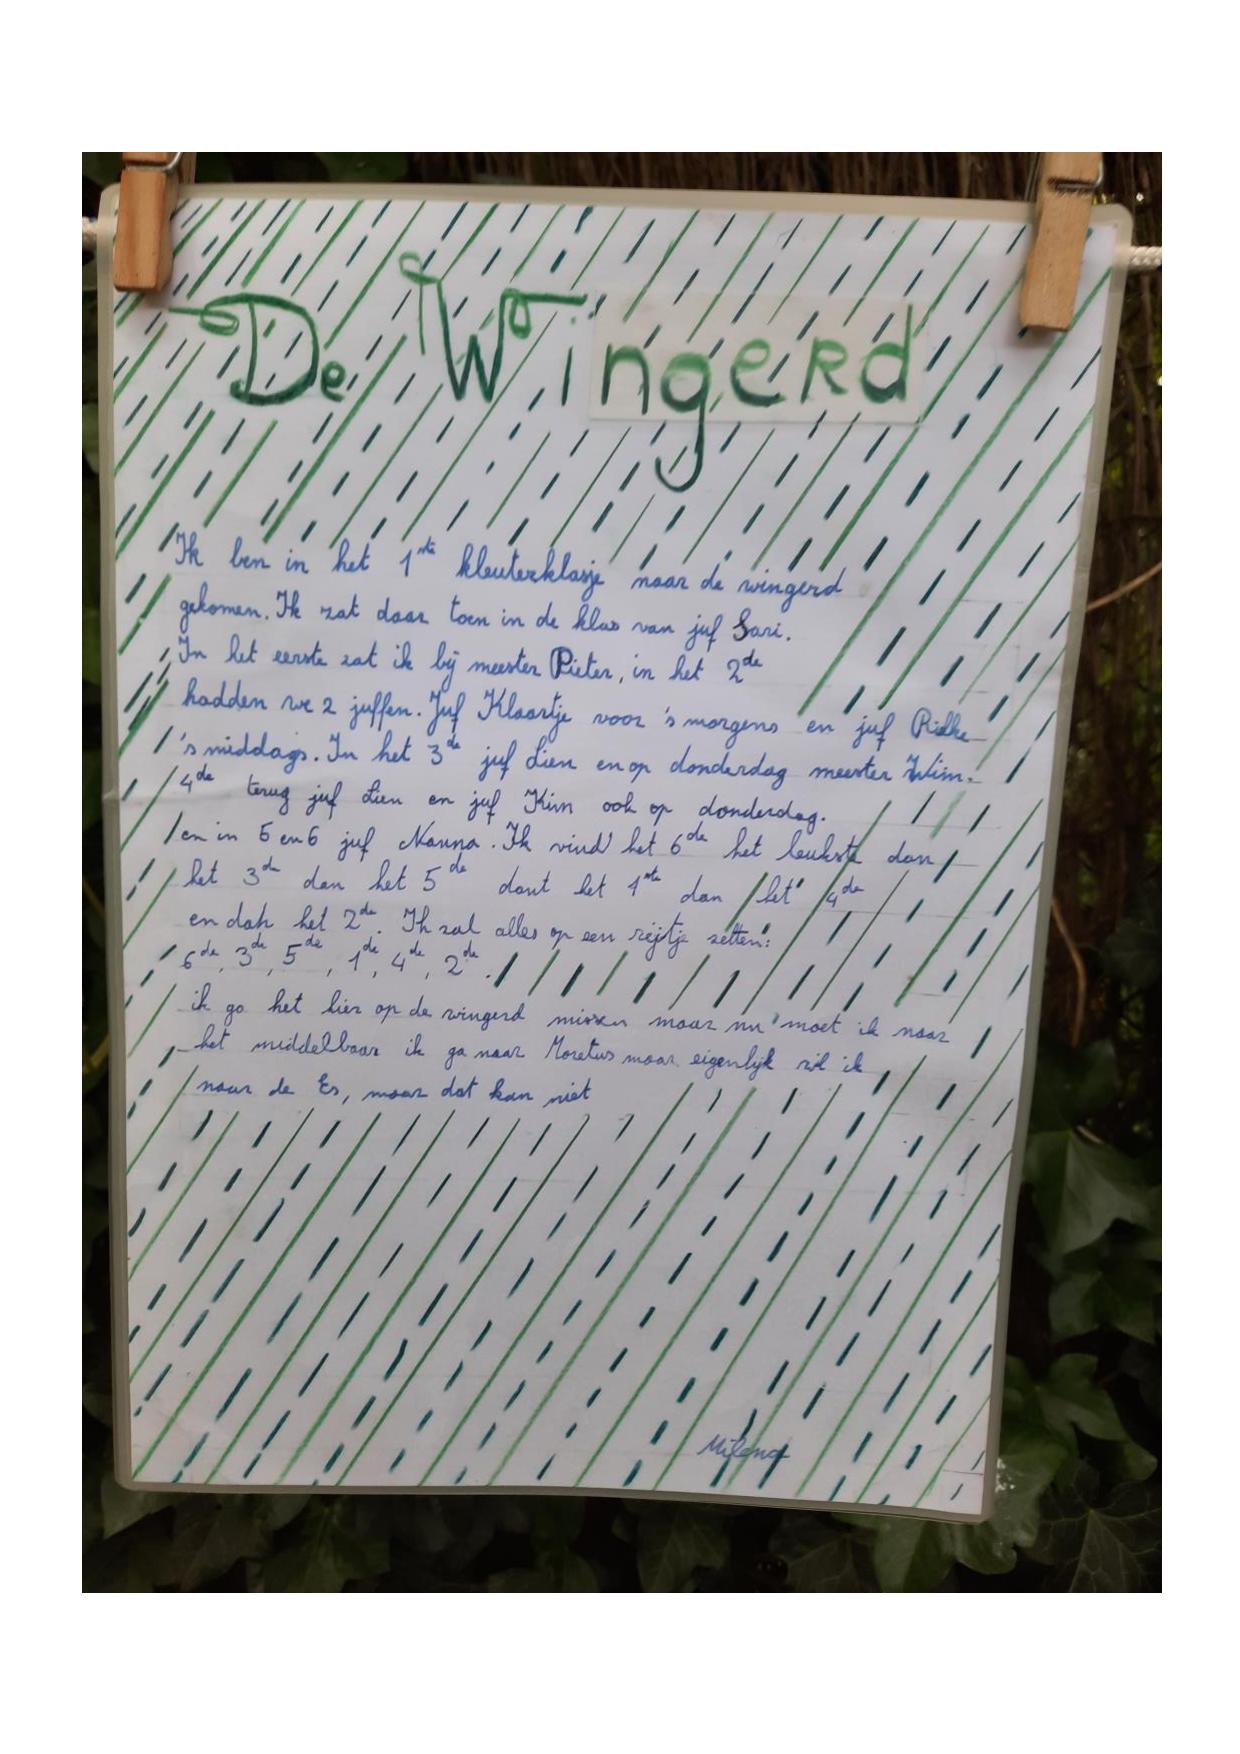 De Wingerd
Ik ben in het 1ste kleuterklasje naar de wingerd
gekomen. Ik zat daar toen in de klas van juf Sari.
In het eerste zat ik bij meester Pieter, in het 2de
hadden we 2 juffen. Juf Klaartje voor 's morgens en juf
's middags. In het 3de juf Lien en op donderdag meester Wim.
4de terug juf Lien en juf Kim ook op donderdag.
en in 5 en 6 juf Nanna. Ik vind het 6de het leukste dan
het 3de dan het 5de dant het 1ste dan het 4de
en dan het 2de. Ik zal alles op een rijtje zetten:
6de, 3de, 5de, 1de, 4de, 2de.
ik ga het hier op de wingerd missen maar nu moet ik naar
het middelbaar ik ga naar Moretus maar eigenlijk wil ik
naar de Es, maar dat kan niet
Milena